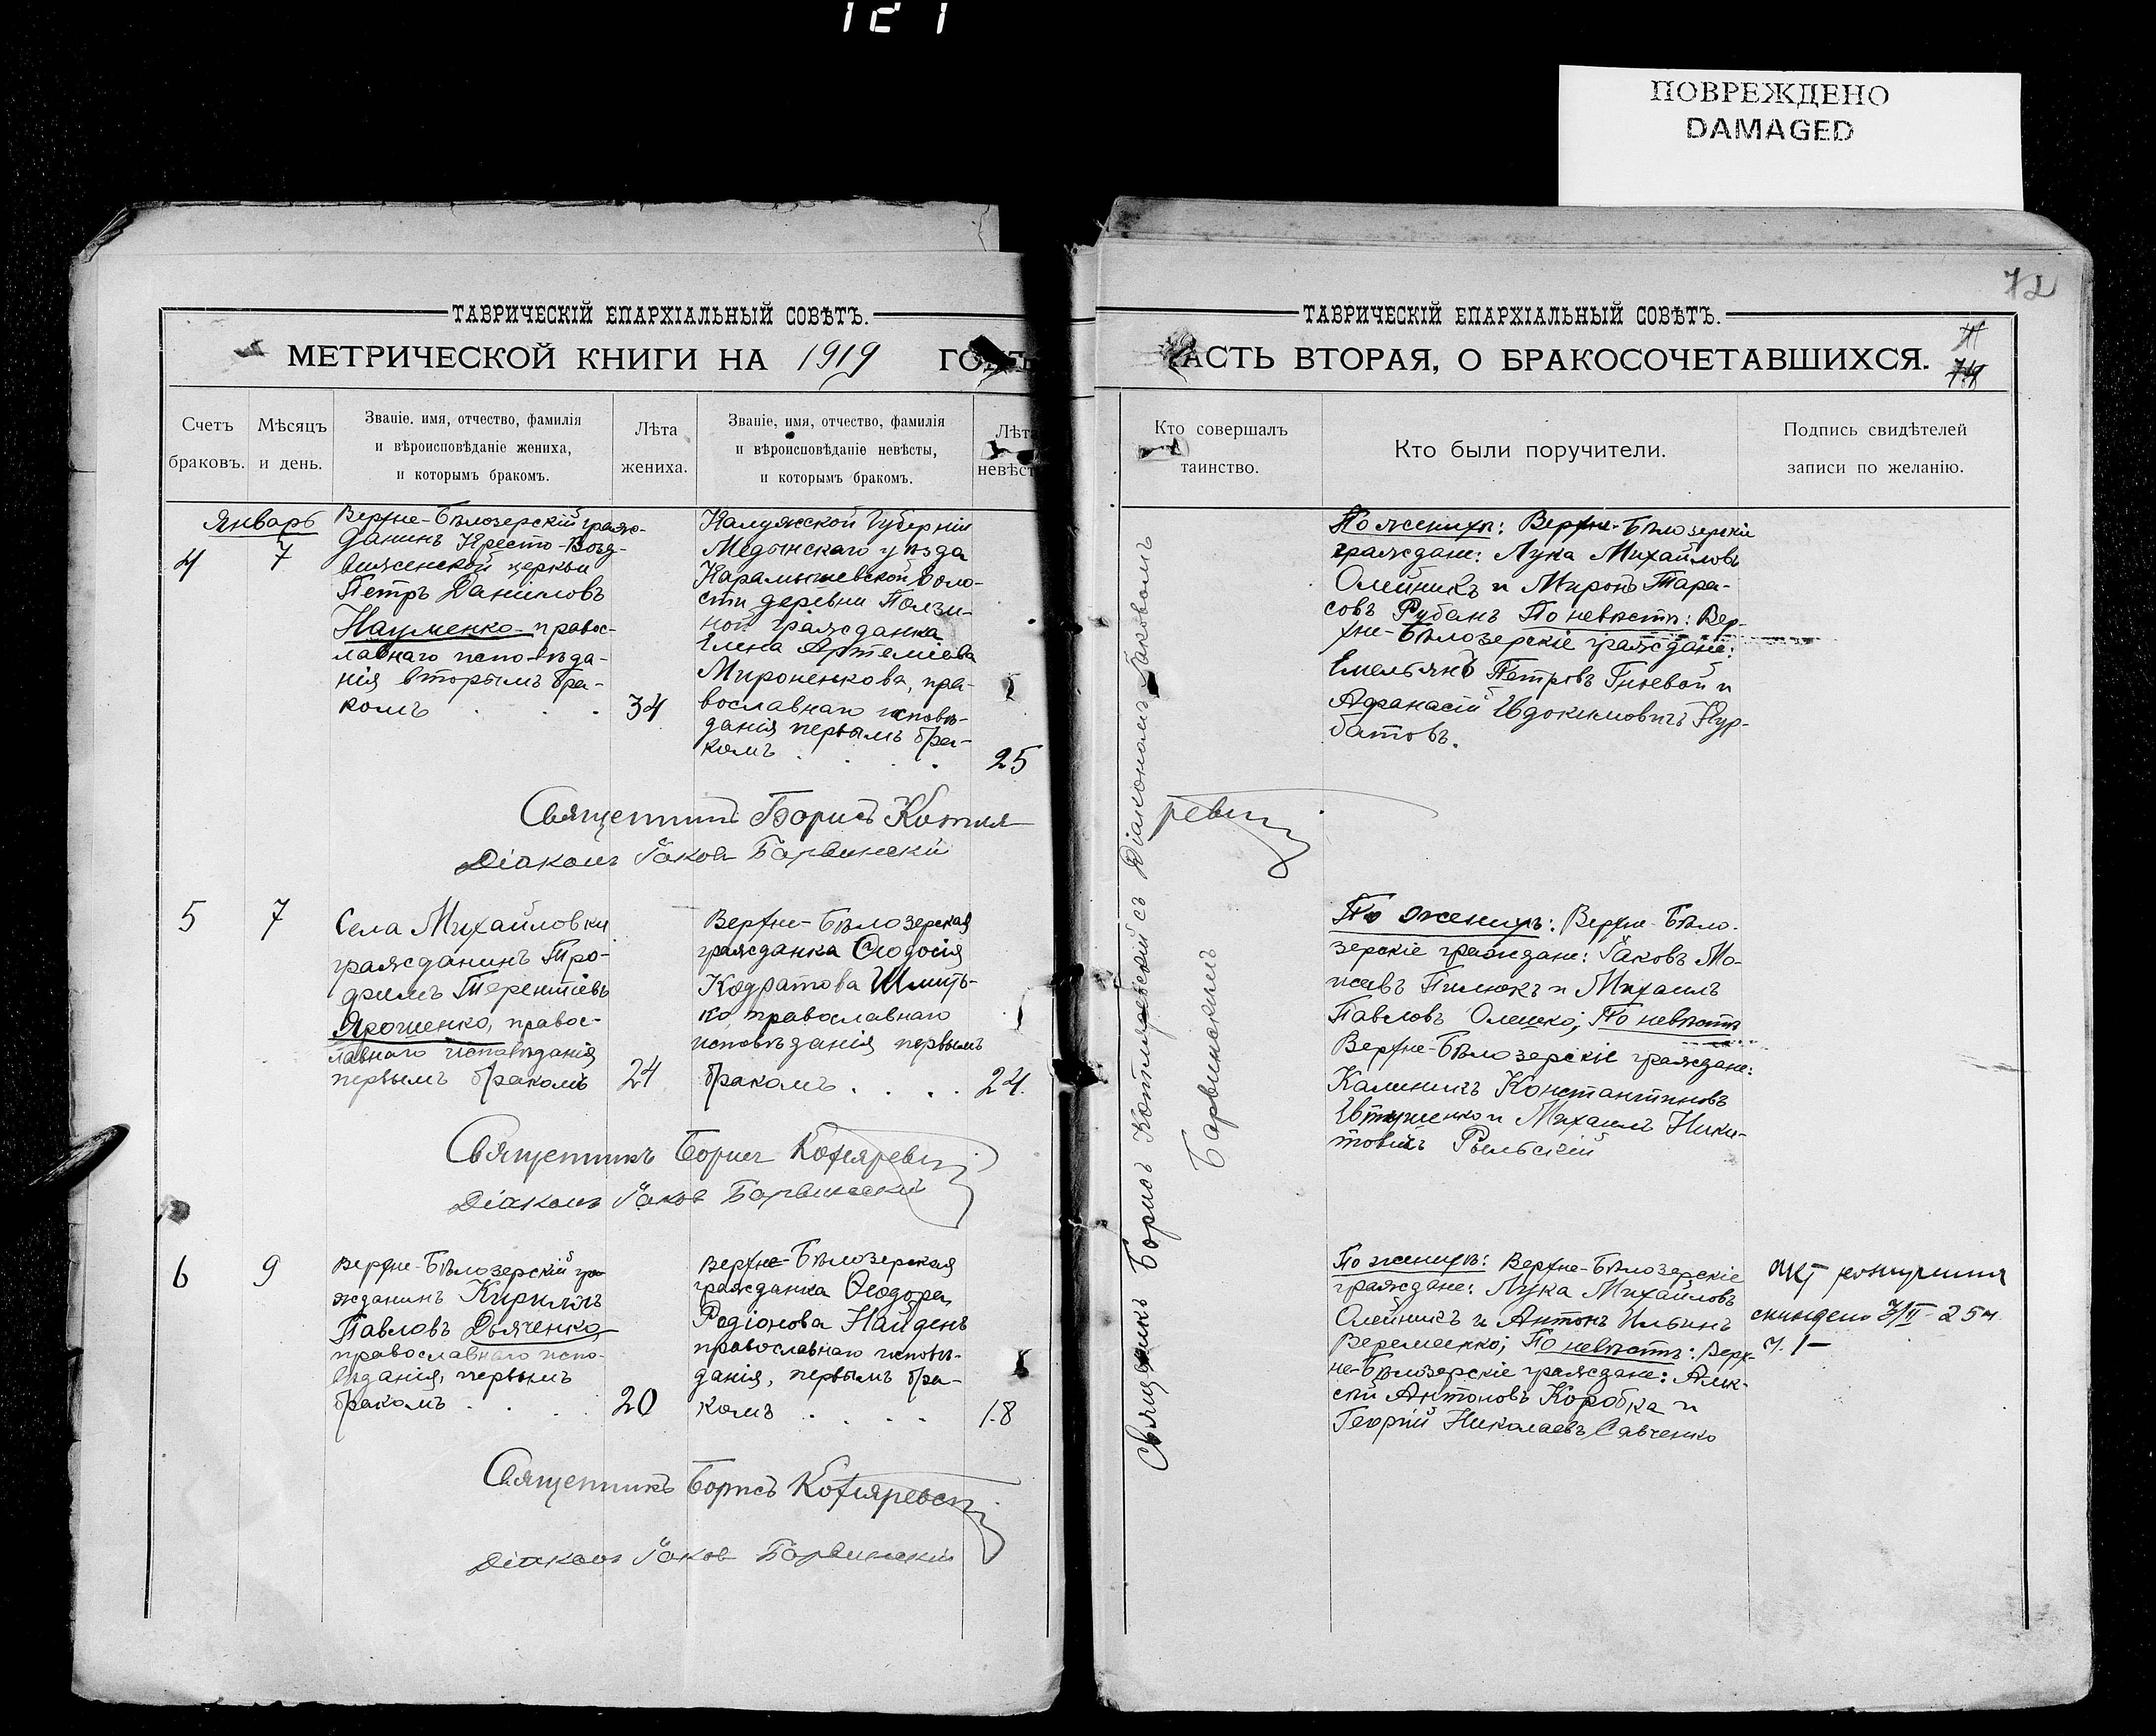 121
ПОВРЕЖДЕНО
DAMAGED
ТАВРИЧЕСКІЙ ЕПАРХІАЛЬНЫЙ СОВѢТЪ.
МЕТРИЧЕСКОЙ КНИГИ НА 1919
Счетъ браковъ.
Мѣсяцъ и день.
Званіе. имя, отчество, фамилія
и вѣроисповѣданіе жениха,
и которымъ бракомъ.
Лѣта
жениха.
Званіе, имя, отчество, фамилія
и вѣроисповѣданіе невѣсты,
и которымъ бракомъ.
Лѣта
невѣст
Январь
4
7
Верхне-Бѣлозерскій граж-
данинъ Кресто-Возд-
виженской церкви
Петръ Даниловъ
Науменко правос-
лавнаго исповѣда-
нія вторымъ бра-
комъ
34
Калужской Губерніи
Медынскаго уѣзда
Карамышевской Воло-
сти деревни Ползи-
ной гражданка
Елена Артеміева
Мироненкова, пра-
вославнаго исповѣ-
данія первымъ бра-
комъ
25
Священникъ Борисъ Котля
Діаконъ Іаковъ Барвинскій
5
7
Села Михайловки
гражданинъ Тро-
фимъ Терентіевъ
Ярошенко, правос-
лавнаго исповѣданія
первымъ бракомъ
24
Верхне-Бѣлозерская
гражданка Ѳеодосія
Кодратова Шмить-
ко, православнаго
исповѣданія первымъ
бракомъ
24.
Священникъ Борисъ Котляревскій
Діаконъ Іаковъ Барвинскій
6
9
Верхне-Бѣлозерскій гра-
жданинъ Кириллъ
Павловъ Дьяченко
православнаго испо-
вѣданія, первымъ
бракомъ
20
Верхне-Бѣлозерская
гражданка Ѳеодора
Родіонова Найденъ
православнаго исповѣ-
данія, первымъ бра-
комъ
18
Священникъ Борисъ Котляревскій
Діаконъ Іаковъ Барвинскій
72
ТАВРИЧЕСКІЙ ЕПАРХІАЛЬНЫЙ СОВѢТЪ.
АСТЬ ВТОРАЯ, О БРАКОСОЧЕТАВШИХСЯ.
Кто совершалъ
таинство.
Кто были поручители.
Подпись свидѣтелей
записи по желанію.
Священникъ Борисъ Котляревскій съ Діакономъ Іаковомъ
Барвинскимъ
ревскій
По женихѣ: Верхне-Бѣлозерскіе
граждане: Лука Михайловъ
Олейникъ и Миронъ Тара-
совъ Рубанъ По невѣстѣ: Вер-
хне-Бѣлозерскіе граждане:
Емельянъ Петровъ Гнѣвой и
Афанасій Івдокимовичъ Кур-
батовъ.
По женихѣ: Верхне-Бѣло-
зерскіе граждане: Іаковъ Мо-
исѣевъ Пилюкъ и Михаилъ
Павловъ Олешко; По невѣстѣ
Верхне-Бѣлозерскіе граждане:
Калиникъ Константиновъ
Івтушенко и Михаилъ Ники-
товичъ Рыльскій
По женихѣ: Верхне-Бѣлозерскіе
граждане: Лука Михайловъ
Олейникъ и Антонъ Ильинъ
Веременко; По невѣстѣ: Верх-
не-Бѣлозерскіе граждане: Алек-
сѣй Антоновъ Коробка и
Георгій Николаевъ Савченко
Акт
7/II-25
ч. 1-